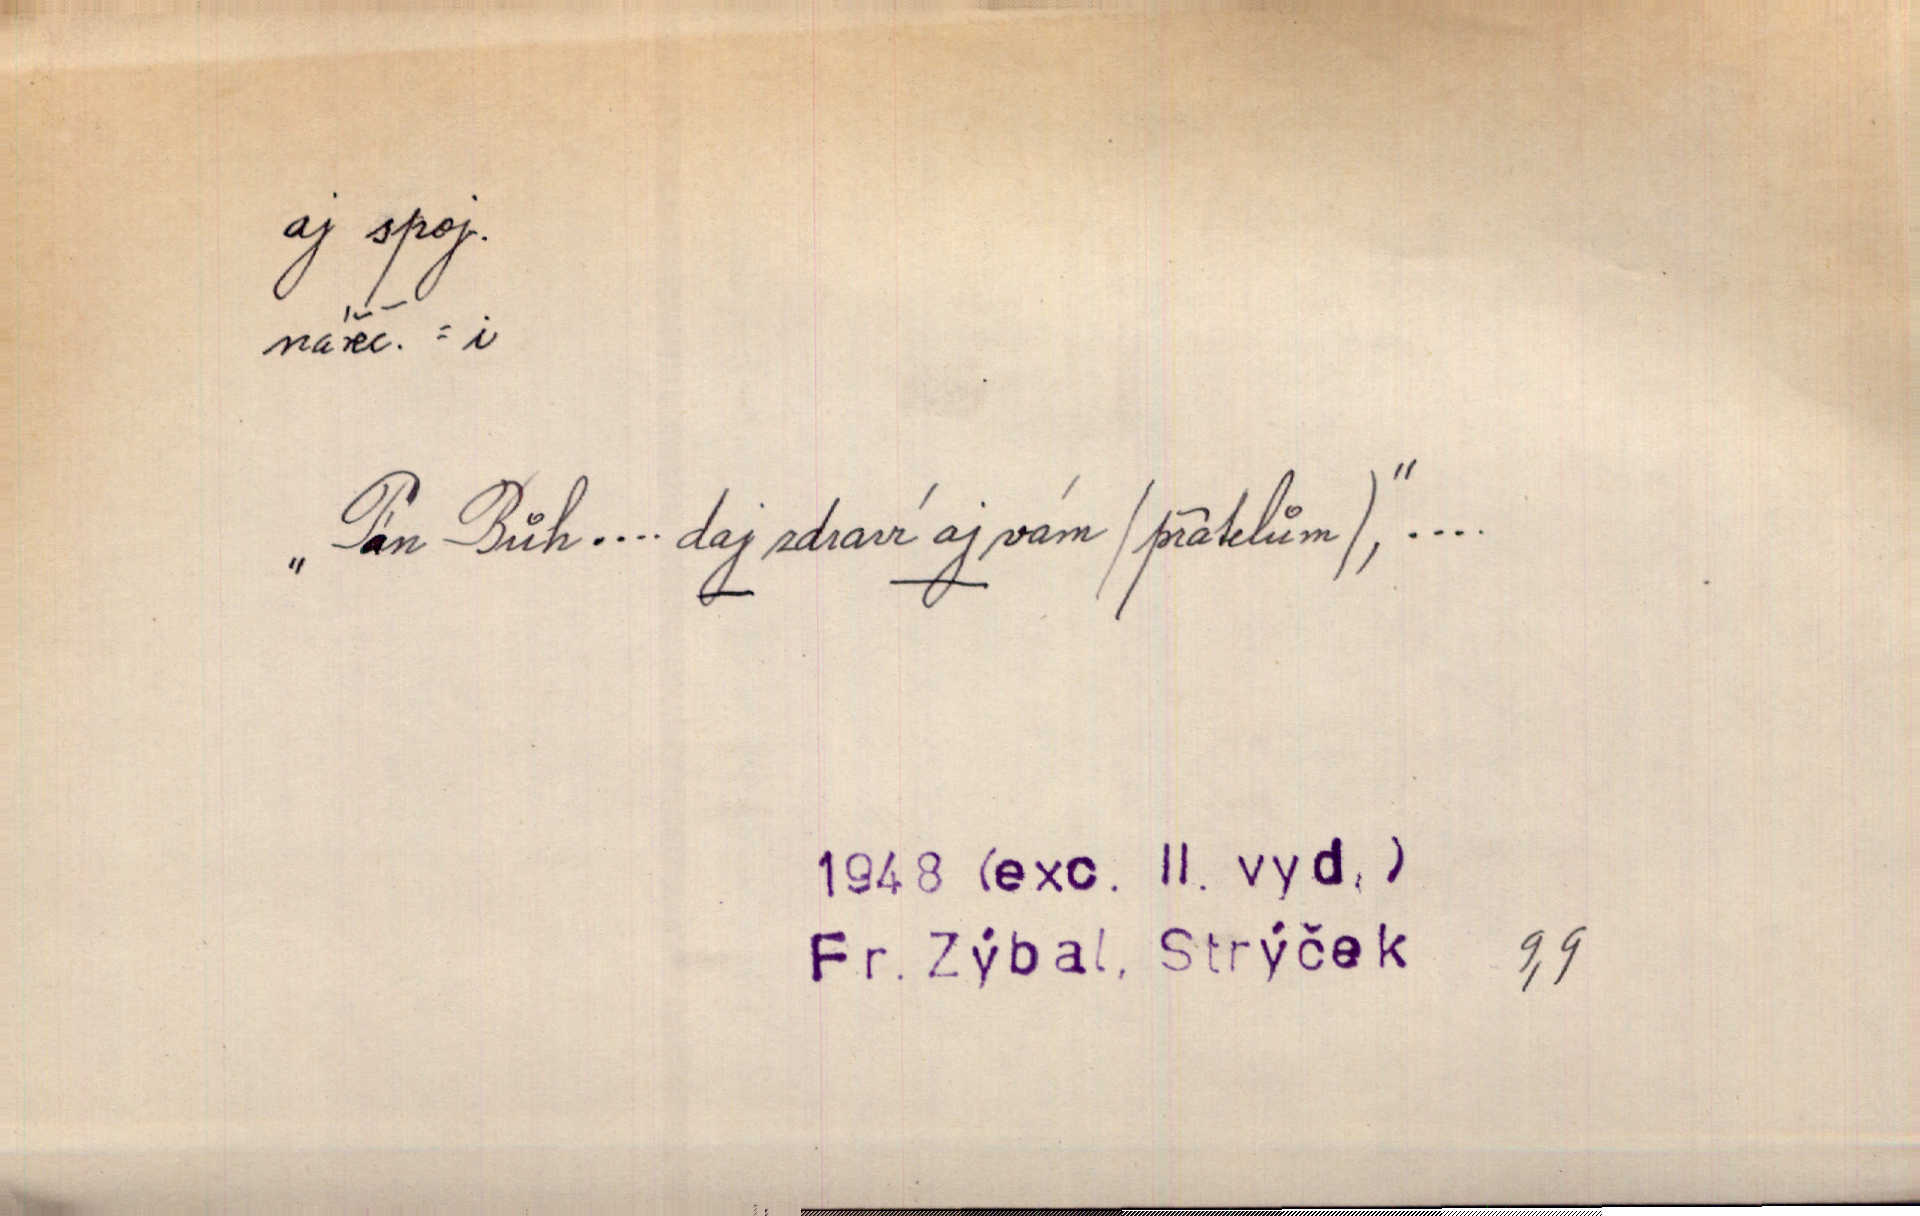 aj spoj.
nářeč. = i
„Pán Bůh .... daj zdraví aj vám (přátelům),“ ....
1948 (exc. II. vyd.)
Fr. Zýbal, Strýček 9,9